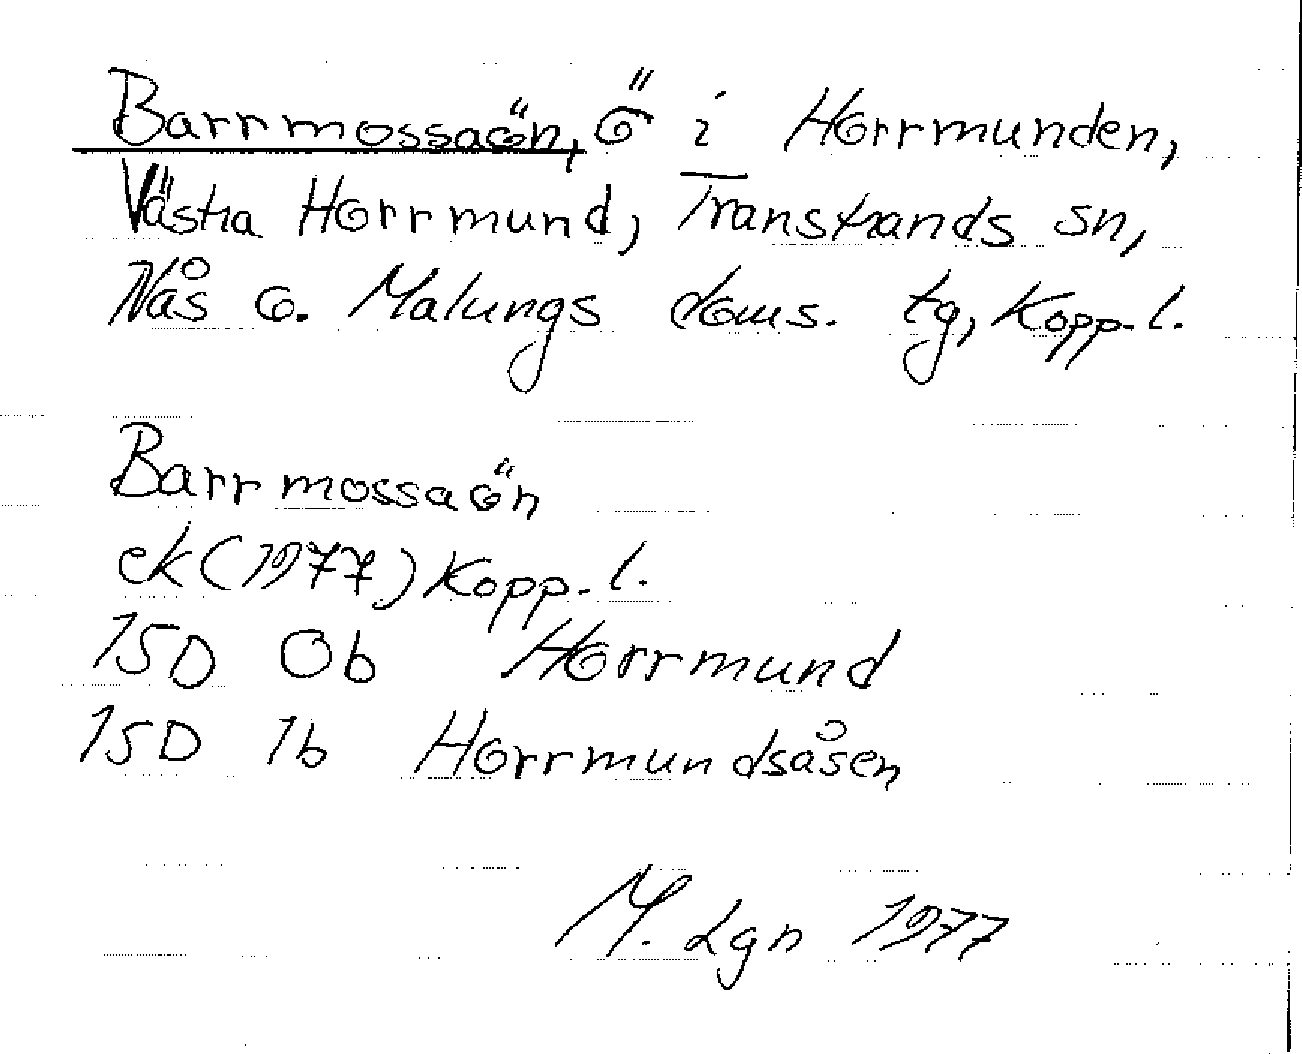 Barrmossaön, ö i Horrmunden,
Västra Horrmund, Transtrands sn,
Nås o. Malungs doms. tg, Kopp. l.
Barrmossaön
ek (1977) Kopp. l.
15D 0b Horrmund
15D 1b Horrmundsåsen
M. Lgn 1977